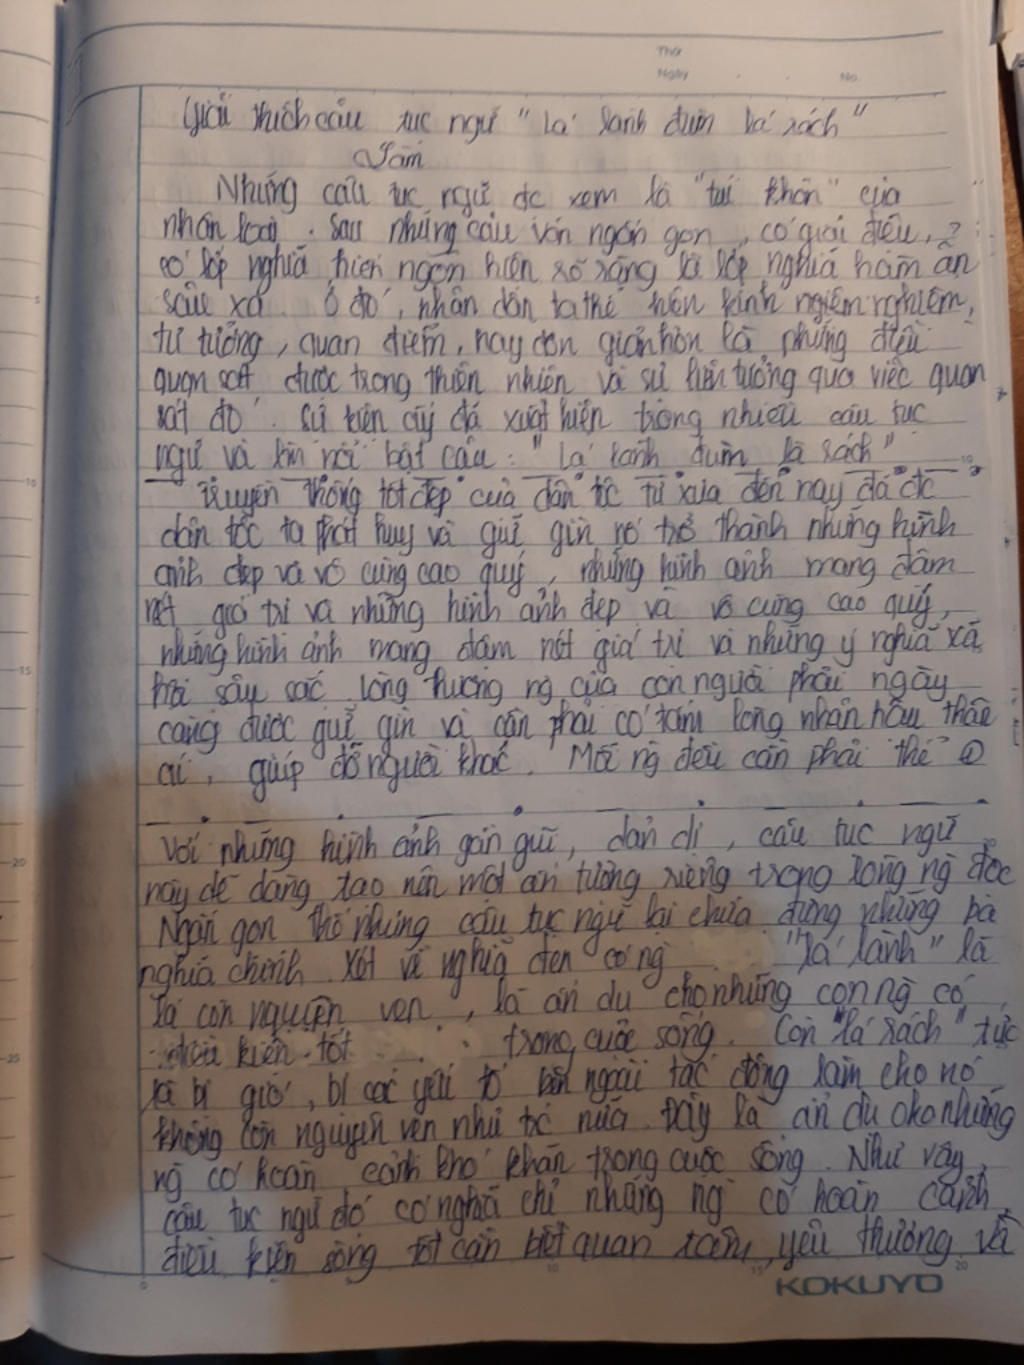 Thứ
Ngày No.
Giải thích câu tục ngữ "Lá lành đùm lá rách"
Những câu tục ngữ đc xem là "túi khôn" của
nhân loại. Sau những câu văn ngắn gọn, có giai điệu, ?
có lớp nghĩa hiển hiện rõ ràng là lớp nghĩa hàm ẩn
sâu xa. Ở đó, nhân dân ta thể hiện kinh ngiệm nghiệm,
tư tưởng, quan điểm, hay đơn giản hơn là những điều
quan sát được trong thiên nhiên và sự liên tưởng qua việc quan
sát đó. Sự kiện ấy đã xuất hiện trong nhiều câu tục
ngữ và nổi bật câu: "Lá lành đùm lá rách"
Truyền thống tốt đẹp của dân tộc từ xưa đến nay đã đc
dân tộc ta phát huy và giữ gìn nó trở thành những hình
ảnh đẹp và vô cùng cao quý, những hình ảnh mang đậm
nét giá trị và những hình ảnh đẹp và vô cùng cao quý,
những hình ảnh mang đậm nét giá trị và những ý nghĩa xã
hội sâu sắc. Lòng thương ng của con người phải ngày
càng được giữ gìn và cần phải có tấm lòng nhân hậu thân
ái, giúp đỡ người khác. Mỗi ng đều cần phải thế
Với những hình ảnh gần gũi, dản dị, câu tục ngữ
này dễ dàng tạo nên một ấn tượng riêng trong lòng ng đọc
Ngắn gọn thế nhưng câu tục ngữ lại chứa đựng những
nghĩa chính. Xét về nghĩa đen có ng "lá lành" là
lá còn nguyên vẹn, là ẩn dụ cho những con ng có
điều kiện tốt trong cuộc sống. Còn "lá rách" tức
là bị gió, bị các yếu tố bên ngoài tác động làm cho nó
không còn nguyên vẹn như trc nữa. Đây là ẩn dụ cho những
ng có hoàn cảnh khó khăn trong cuộc sống. Như vậy,
câu tục ngữ đó có nghĩa chỉ những ng có hoàn cảnh,
điều kiện sống tốt cần biết quan tâm, yêu thương và
KOKUYO